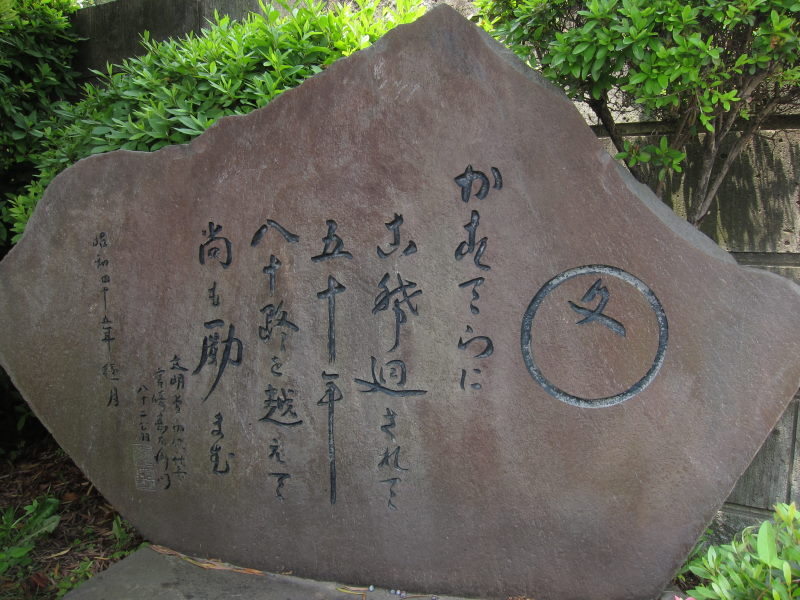 文
かすてらに
廻されて
五十年
八十路を越えて
尚も励まむ
昭和四十五年 月
文明堂
宮崎甚左衛門
八十二